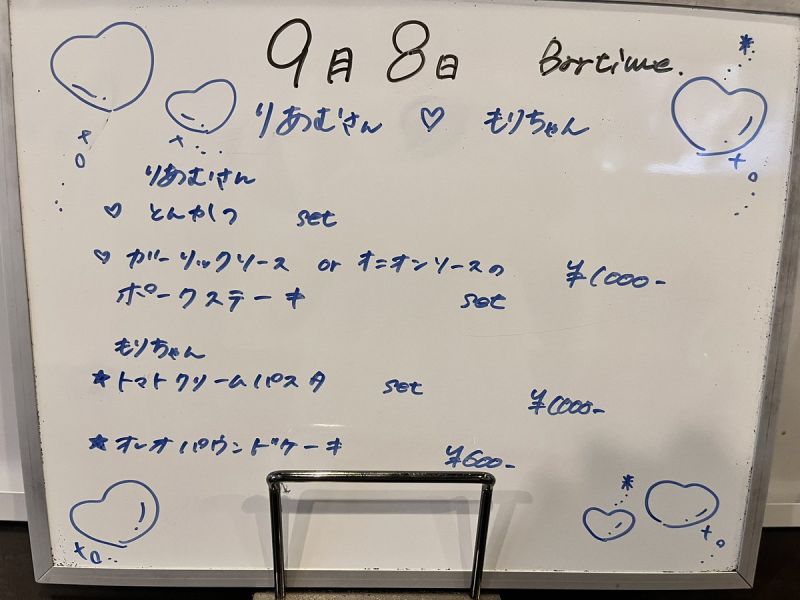 9月8日 Bartime.
りあむさん ♡ もりちゃん
りあむさん
♡ とんかつ set
♡ ガーリックソース or オニオンソースの ¥1000-
ポークステーキ set
もりちゃん
★トマトクリームパスタ set ¥1000-
★オレオパウンドケーキ ¥600-